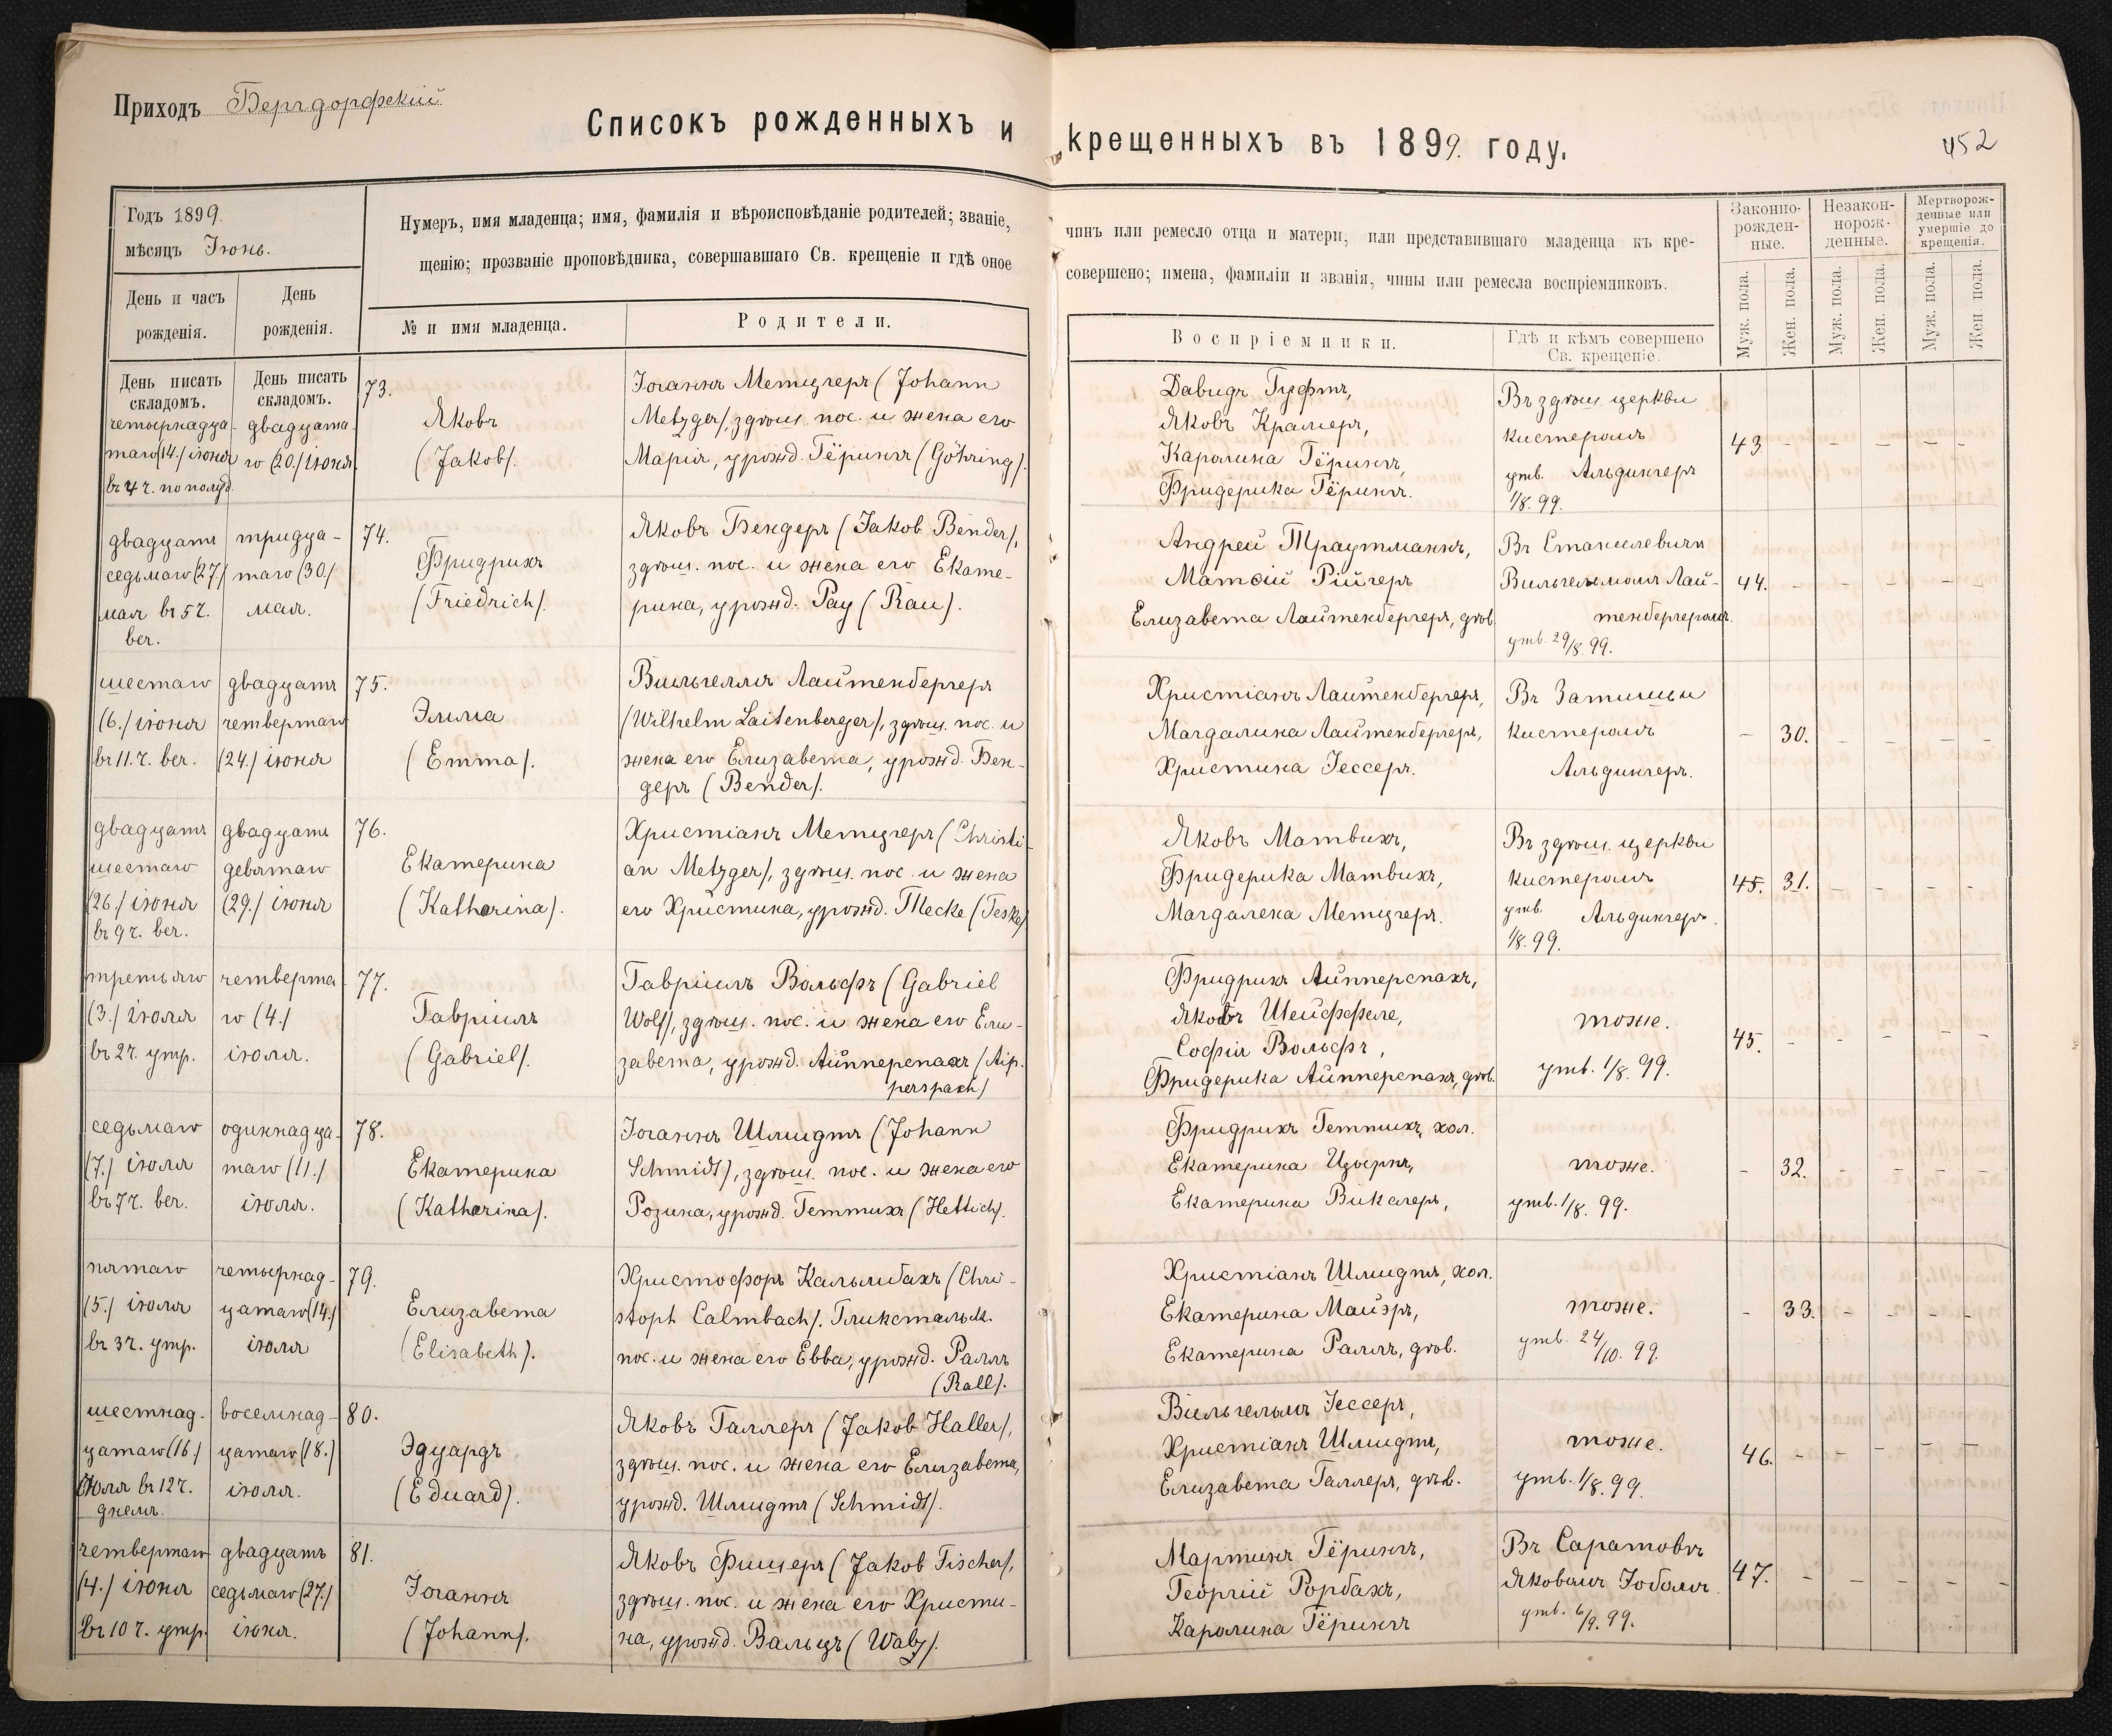 Приходъ Бергдорфскій
Списокъ рожденныхъ и крещенныхъ въ 1899. году.
452
Годъ 1899.
мѣсяцъ Іюнь.
Нумеръ, имя младенца; имя, фамилія и вѣроисповѣданіе родителей; званіе, чинъ или ремесло отца и матери, или представившаго младенца къ кре-
щенію; прозваніе проповѣдника, совершавшаго Св. крещеніе и гдѣ оное совершено; имена, фамиліи и званія, чины или ремесла воспріемниковъ.
Законно-
рожден-
ные.
Незакон-
норож-
денные.
Мертворож-
денные или
умершіе до
крещенія.
День и часъ
рожденія.
День
рожденія.
№ и имя младенца.
Родители.
Воспріемники.
Гдѣ и кѣмъ совершено
Св. крещеніе.
Муж. пола.
Жен. пола.
Муж. пола.
Жен. пола.
Муж. пола.
Жен. пола.
День писать
складомъ.
День писать
складомъ.
четырнадца-
таго (14./ іюня
въ 4 ч. по полуд.
двадцата-
го (20./ іюня
73.
Яковъ
(Jakob/.
Іоганнъ Метцгеръ (Johann
Metzger/, здѣш. пос. и жена его
Марія, урожд. Гёрингъ (Göhring/.
Давидъ Гуфтъ,
Яковъ Крамеръ,
Каролина Гёрингъ,
Фридерика Гёрингъ.
Въ здѣш. церкви
кистеромъ
утв. Альдингеръ
1/8. 99.
43 - - - - -
двадцать
седьмаго (27./
мая въ 5 ч.
веч.
тридца-
таго (30./
мая.
74.
Фридрихъ
(Friedrich/.
Яковъ Бендеръ (Jakob Bender/,
здѣш. пос. и жена его Екате-
рина, урожд. Рау (Rau/.
Андрей Траутманнъ,
Матѳій Рійгеръ
Елизавета Лайтенбергеръ, дѣв.
Въ Станиславичи
Вильгельмомъ Лай-
тенбергеромъ.
утв. 29/8. 99.
44. - - - - -
шестаго
(6./ іюня
въ 11. ч. веч.
двадцать
четвертаго
(24./ іюня
75.
Эмма
(Emma/.
Вильгелмъ Лайтенбергеръ
(Wilhelm Laitenberger/, здѣш. пос. и
жена его Елизавета, урожд. Бен-
деръ (Bender/.
Христіанъ Лайтенбергеръ,
Магдалина Лайтенбергеръ,
Христина Іессеръ.
Въ Затишьи
кистеромъ
Альдингеръ.
- 30. - - - -
двадцать
шестаго
(26./ іюня
въ 9 ч. веч.
двадцать
девятаго
(29./ іюня
76.
Екатерина
(Katharina/.
Христіанъ Метцгеръ (Christi-
an Metzger/, здѣш. пос. и жена
его Христина, урожд. Теске (Teske/
Яковъ Матвихъ,
Фридерика Матвихъ,
Магдалена Метцгеръ.
Въ здѣш. церкви
кистеромъ
утв. Альдингеръ.
1/8. 99.
45. 31. - - - -
третьяго
(3./ іюля
въ 2 ч. утр.
четверта-
го (4./
іюля.
77.
Гавріилъ
(Gabriel/.
Гавріилъ Вольфъ (Gabriel
Wolf/, здѣш. пос. и жена его Ели-
завета, урожд. Айпперспахъ (Aip-
perspach/
Фридрихъ Айпперспахъ,
Яковъ Шейффеле,
Софія Вольфъ,
Фридерика Айпперспахъ, дѣв.
тоже.
утв. 1/8. 99.
45. - - - - -
седьмаго
(7./ іюля
въ 7 ч. веч.
одиннадца-
таго (11./
іюля.
78.
Екатерина
(Katharina/.
Іоганнъ Шмидтъ (Johann
Schmidt/, здѣш. пос. и жена его
Розина, урожд. Геттихъ (Hettich/.
Фридрихъ Геттихъ, хол.
Екатерина Цвернъ,
Екатерина Викагеръ,
тоже.
утв. 1/8. 99.
- 32. - - - -
пятаго
(5./ іюля
въ 3 ч. утр.
четырнад-
цатаго (14./
іюля
79.
Елизавета
(Elisabeth/.
Христофоръ Кальмбахъ (Chri-
stoph Calmbach/. Гликстальск.
пос. и жена его Евва, урожд. Раллъ
(Rall/.
Христіанъ Шмидтъ, хол.
Екатерина Майэръ,
Екатерина Раллъ, дѣв.
тоже.
утв. 24/10. 99.
- 33. - - - -
шестнад-
цатаго (16./
Июля въ 12 ч.
днемъ.
восемнад-
цатаго (18./
іюля.
80.
Эдуардъ
(Eduard/.
Яковъ Галлеръ (Jakob Haller/,
здѣш. пос. и жена его Елизавета,
урожд. Шмидтъ (Schmidt/.
Вильгельмъ Іессеръ,
Христіанъ Шмидтъ,
Елизавета Галлеръ, дѣв.
тоже.
утв. 1/8. 99.
46. - - - - -
четвертаго
(4./ іюня
въ 10 ч. утр.
двадцать
седьмаго (27./
іюня.
81.
Іоганнъ
(Johann/.
Яковъ Фишеръ (Jakob Fischer/,
здѣш. пос. и жена его Христи-
на, урожд. Вальцъ (Walz/.
Мартинъ Гёрингъ,
Георгій Рорбахъ,
Каролина Гёрингъ
Въ Саратовѣ
Яковомъ Зоболь.
утв. 6/9. 99.
47. - - - - -